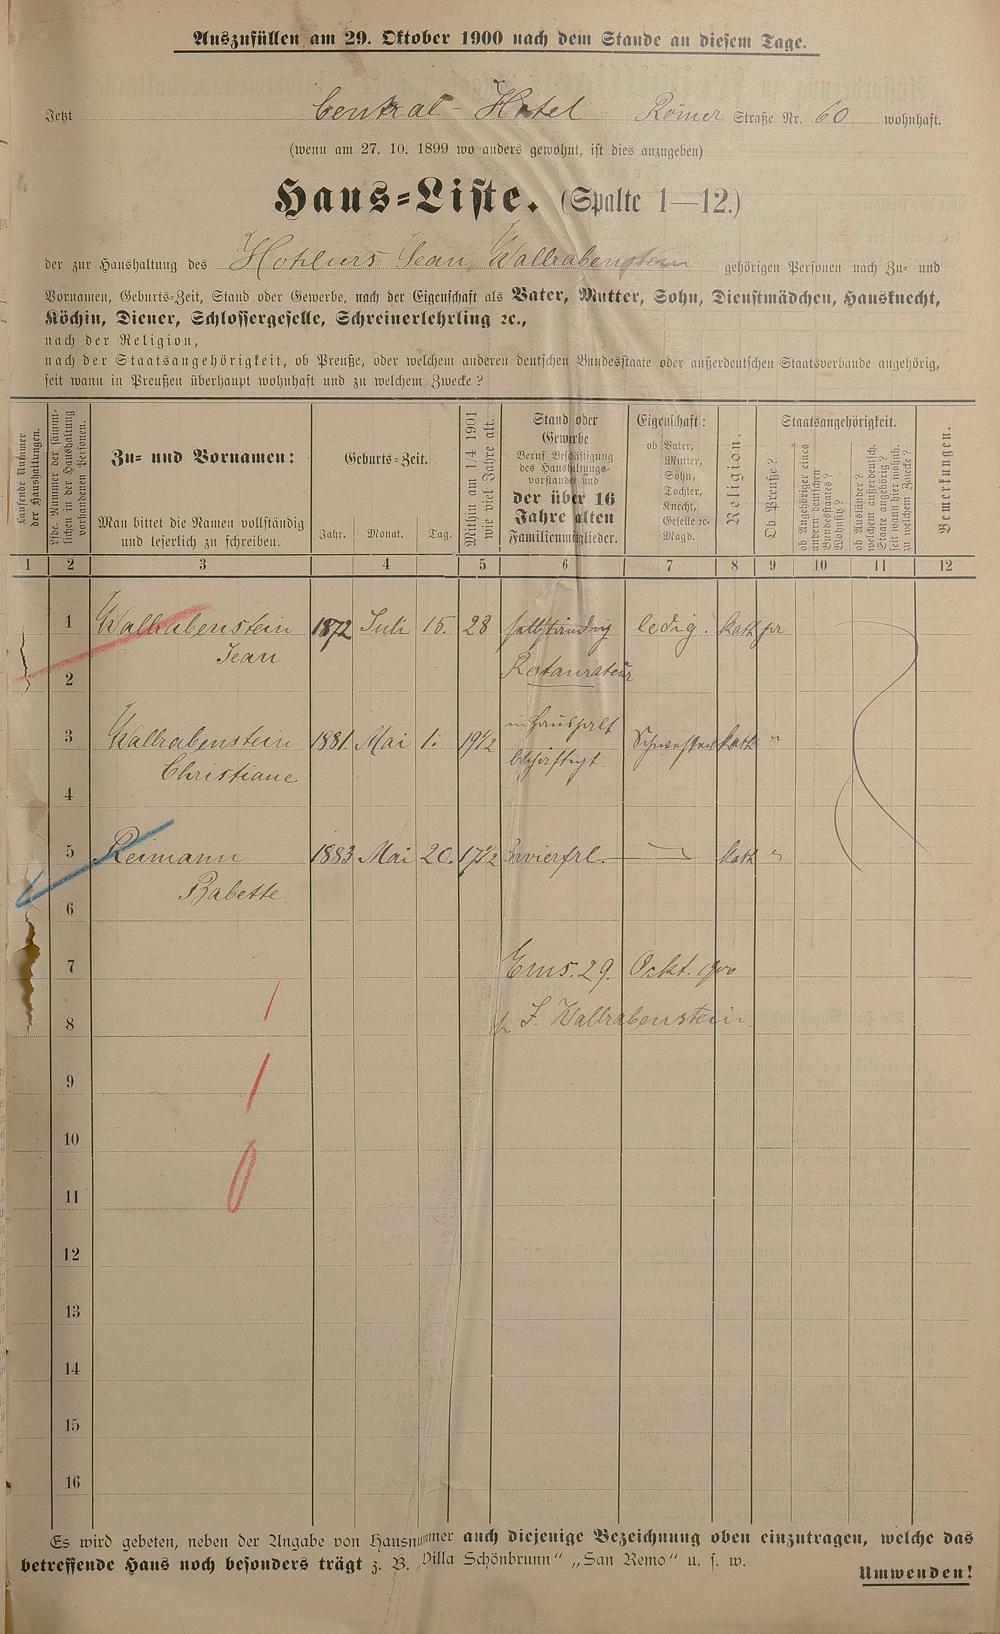 Auszufüllen am 29. Oktober 1900 nach dem Stande an diesem Tage.
Jetzt Central-Hotel Römer Straße Nr. 60 wohnhaft.
(wenn am 27. 10. 1899 wo anders gewohnt, ist dies anzugeben)
Haus-Liste. (Spalte 1—12.)
der zur Haushaltung des Hoteliers Jean Wallrabenstein gehörigen Personen nach Zu- und
Vornamen, Geburts-Zeit, Stand oder Gewerbe, nach der Eigenschaft als Vater, Mutter, Sohn, Dienstmädchen, Hausknecht,
Köchin, Diener, Schlossergeselle, Schreinerlehrling ꝛc.,
nach der Religion,
nach der Staatsangehörigkeit, ob Preuße, oder welchem anderen deutschen Bundesstaate oder außerdeutschen Staatsverbande angehörig,
seit wann in Preußen überhaupt wohnhaft und zu welchem Zwecke?
Laufende Nummer
der Haushaltungen.
Lfde. Nummer der sämmt-
lichen in der Haushaltung
vorhandenen Personen.
Zu- und Vornamen:
Man bittet die Namen vollständig
und leserlich zu schreiben.
Geburts-Zeit.
Jahr. Monat. Tag.
Mithin am 1/4 1901
wie viel Jahre alt.
Stand oder
Gewerbe
Beruf Beschäftigung
des Haushaltungs-
vorstandes und
der über 16
Jahre alten
Familienmitglieder.
Eigenschaft:
ob Vater,
Mutter,
Sohn,
Tochter,
Knecht,
Geselle ꝛc.
Magd.
Religion.
Staatsangehörigkeit.
Ob Preuße?
ob Angehöriger eines
andern deutschen
Bundesstaates?
Wohnsitz?
ob Ausländer?
welchem außerdeutsch.
Staate angehörig?
seit wann hier wohnh.
zu welchem Zwecke?
Bemerkungen.
1 2 3 4 5 6 7 8 9 10 11 12
1 Wallrabenstein 1872 Juli 15. 28 selbständig ledig. kath pr
Jean Restaurateur
2
3 Wallrabenstein 1881 Mai 1. 19 1/2 im Haushalt Schwester kath "
Christiane beschäftigt.
4
5 Reimann 1883 Mai 20. 17 1/2 Servierfrl. kath "
Babette
6
7 Ems. 29. Ockt. 1900
8 J. Wallrabenstein.
9
10
11
12
13
14
15
16
Es wird gebeten, neben der Angabe von Hausnummer auch diejenige Bezeichnung oben einzutragen, welche das
betreffende Haus noch besonders trägt z. B. „Villa Schönbrunn“ „San Remo“ u. s. w.
Umwenden!